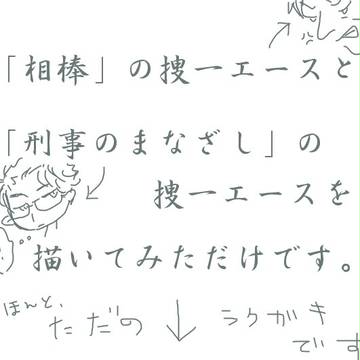 「相棒」の捜一エースと
「刑事のまなざし」の
捜一エースを
描いてみただけです。
ほんと、
ただの ↓ ラクガキ
です